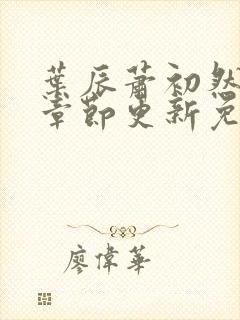 葉辰蕭初然
章節更新免
廖偉華